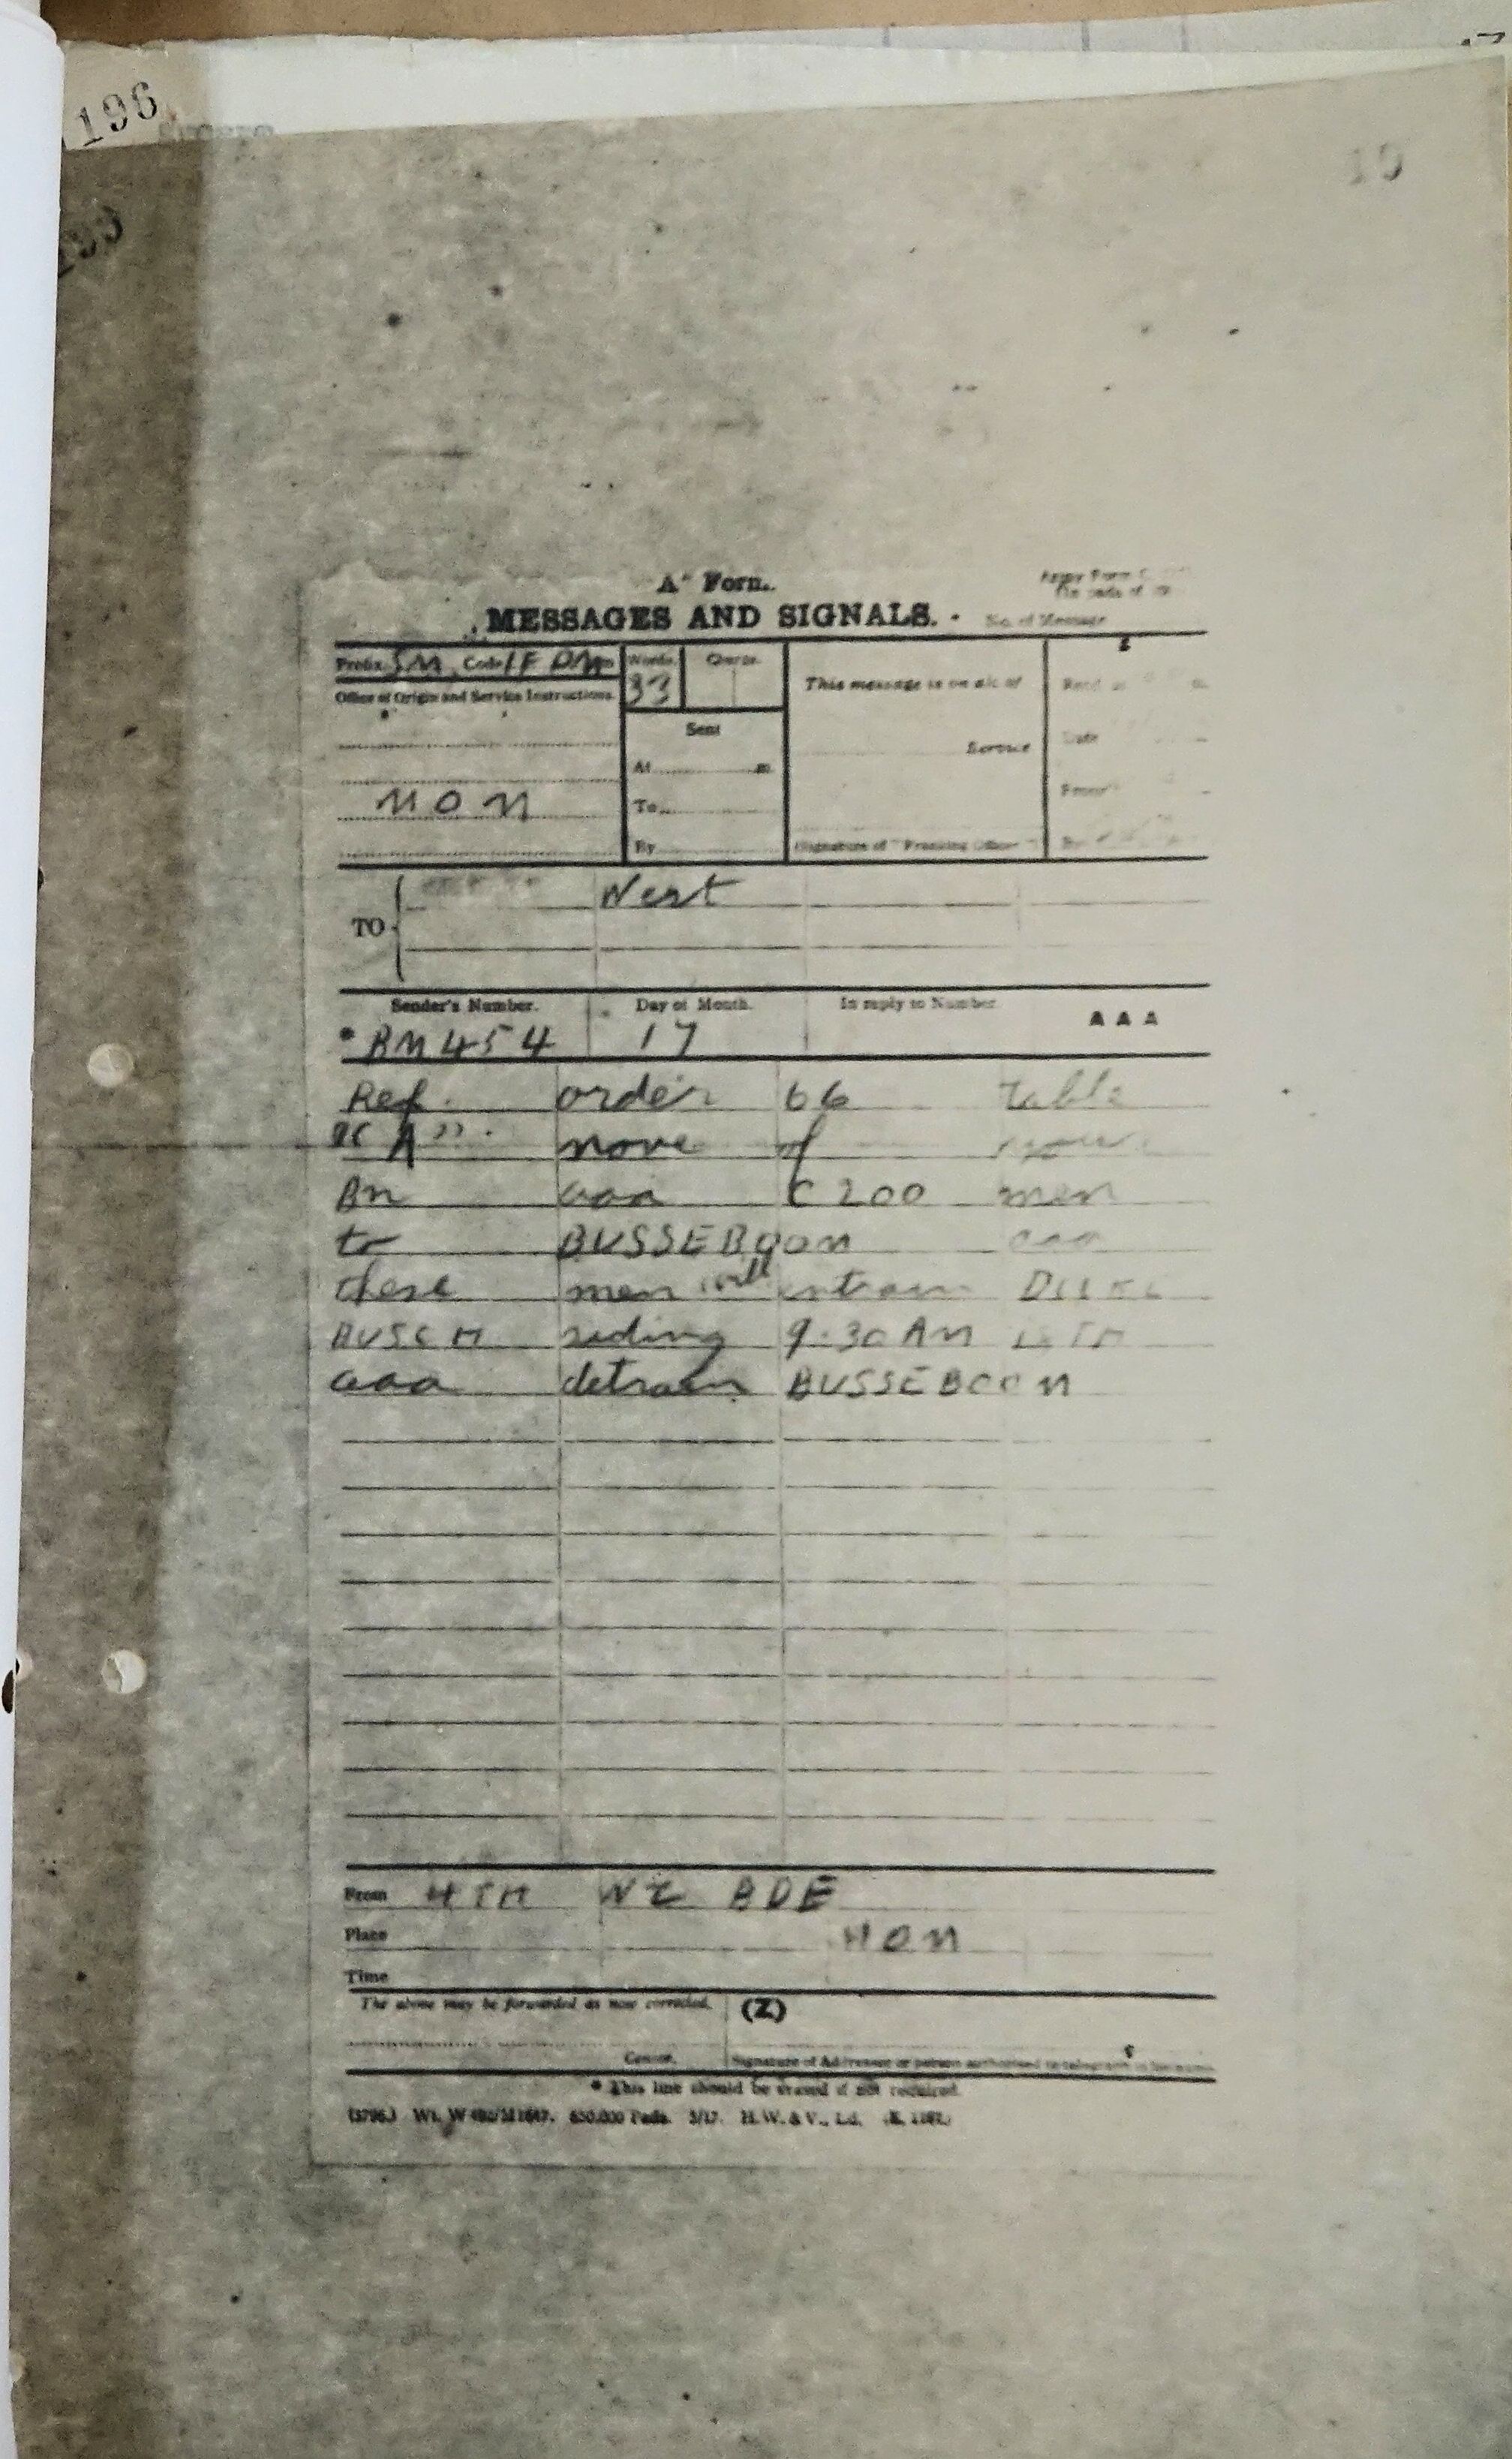 196
10
"A" Form.
MESSAGES AND SIGNALS.
No. of Message
Prefix SM Code Words. Charge.
33
Office of Origin and Service Instructions.
This message is on a/c of
Sent
Service
Date
At m.
From
HON
To
By
(Signature of "Franking Officer")
TO
West
Sender's Number. Day of Month. In reply to Number. AAA
* BM 454 17
Ref. order 66 Table
"A". move of your
Bn aaa C 200 men
to BUSSEBOOM aaa
these men will entrain DICKE
BUSCH siding 9.30 AM 18TH
aaa detrain BUSSEBOOM
From 4TH NZ BDE
Place HON
Time
The above may be forwarded as now corrected. (Z)
Censor. Signature of Addressor or person authorised to telegraph in his name.
* This line should be erased if not required.
650,000 Pads. 5/17. H.W. & V., Ld.